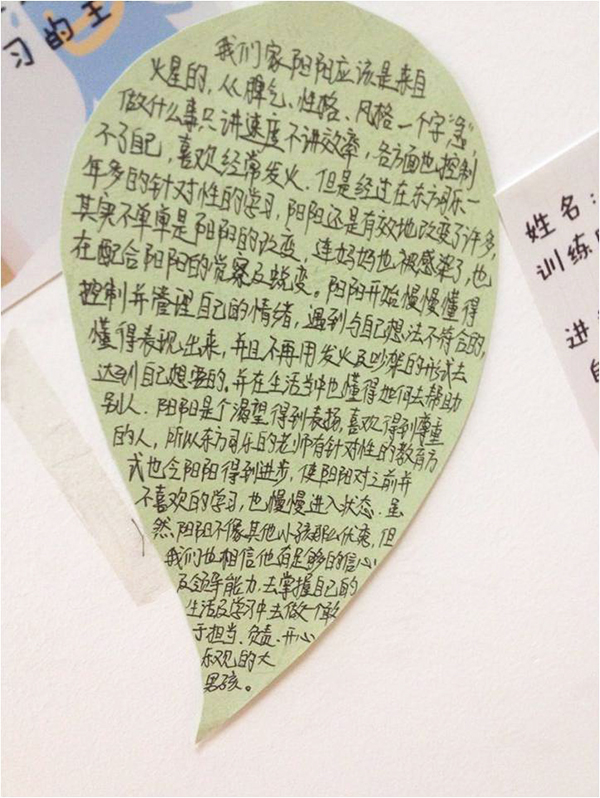 习的王
我们家阳阳应该是来自
火星的，从脾气、性格、风格一个字"急"，
做什么事只讲速度不讲效率，各方面也控制
不了自己，喜欢经常发火。但是经过在东方可乐一
年多的针对性的学习，阳阳还是有效地改变了许多，
其实不单单是阳阳的改变，连妈妈也被感染了，也
在配合阳阳的觉察及蜕变。阳阳开始慢慢懂得
控制并管理自己的情绪，遇到与自己想法不符合的，
懂得表现出来，并且不再用发火及吵架的形式去
达到自己想要的。并在生活当中也懂得如何去帮助
别人。阳阳是个渴望得到表扬，喜欢得到尊重
的人，所以东方可乐的老师有针对性的教育方
式也令阳阳得到进步，使阳阳对之前并
不喜欢的学习，也慢慢进入状态。虽
然阳阳不像其他小孩那么优秀，但
我们也相信他有足够的信心
及领导能力，去掌握自己的
生活及学习中去做一个敢
于担当、负责、开心
乐观的大
男孩。
姓名：
训练
进